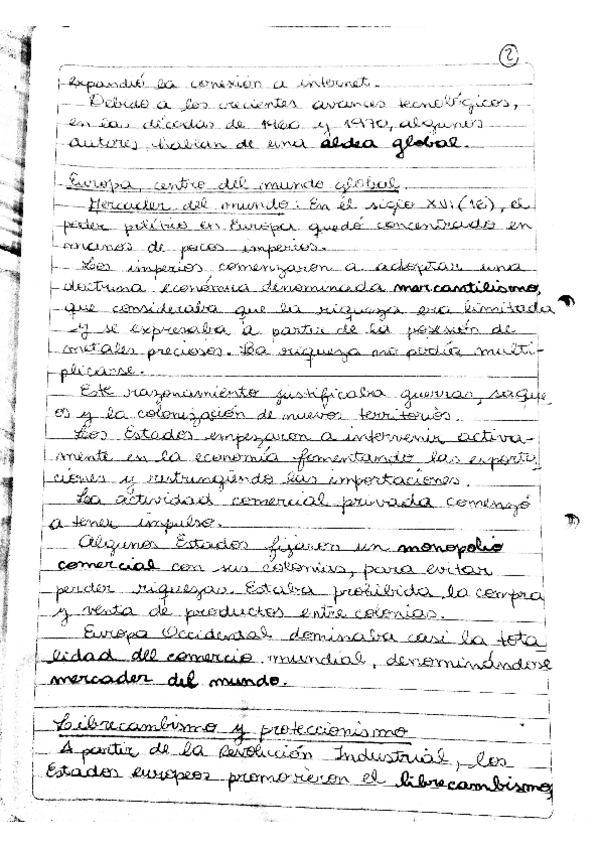 2
expandió la conexión a internet.
Debido a los crecientes avances tecnológicos,
en las décadas de 1960 y 1970, algunos
autores hablan de una aldea global.
Europa, centro del mundo global.
Mercader del mundo: En el siglo XVI (16), el
poder político en Europa quedó concentrado en
manos de pocos imperios.
Los imperios comenzaron a adoptar una
doctrina económica denominada mercantilismo,
que consideraba que la riqueza era limitada
y se expresaba a partir de la posesión de
metales preciosos. La riqueza no podía multi-
plicarse.
Este razonamiento justificaba guerras, saque
os y la colonización de nuevos territorios.
Los Estados empezaron a intervenir activa-
mente en la economía fomentando las exporta
ciones y restringiendo las importaciones.
La actividad comercial privada comenzó
a tener impulso.
Algunos Estados fijaron un monopolio
comercial con sus colonias, para evitar
perder riquezas. Estaba prohibida la compra
y venta de productos entre colonias.
Europa Occidental dominaba casi la tota
lidad del comercio mundial, denominándose
mercader del mundo.
Librecambismo y proteccionismo
A partir de la Revolución Industrial, los
Estados europeos promovieron el librecambismo,